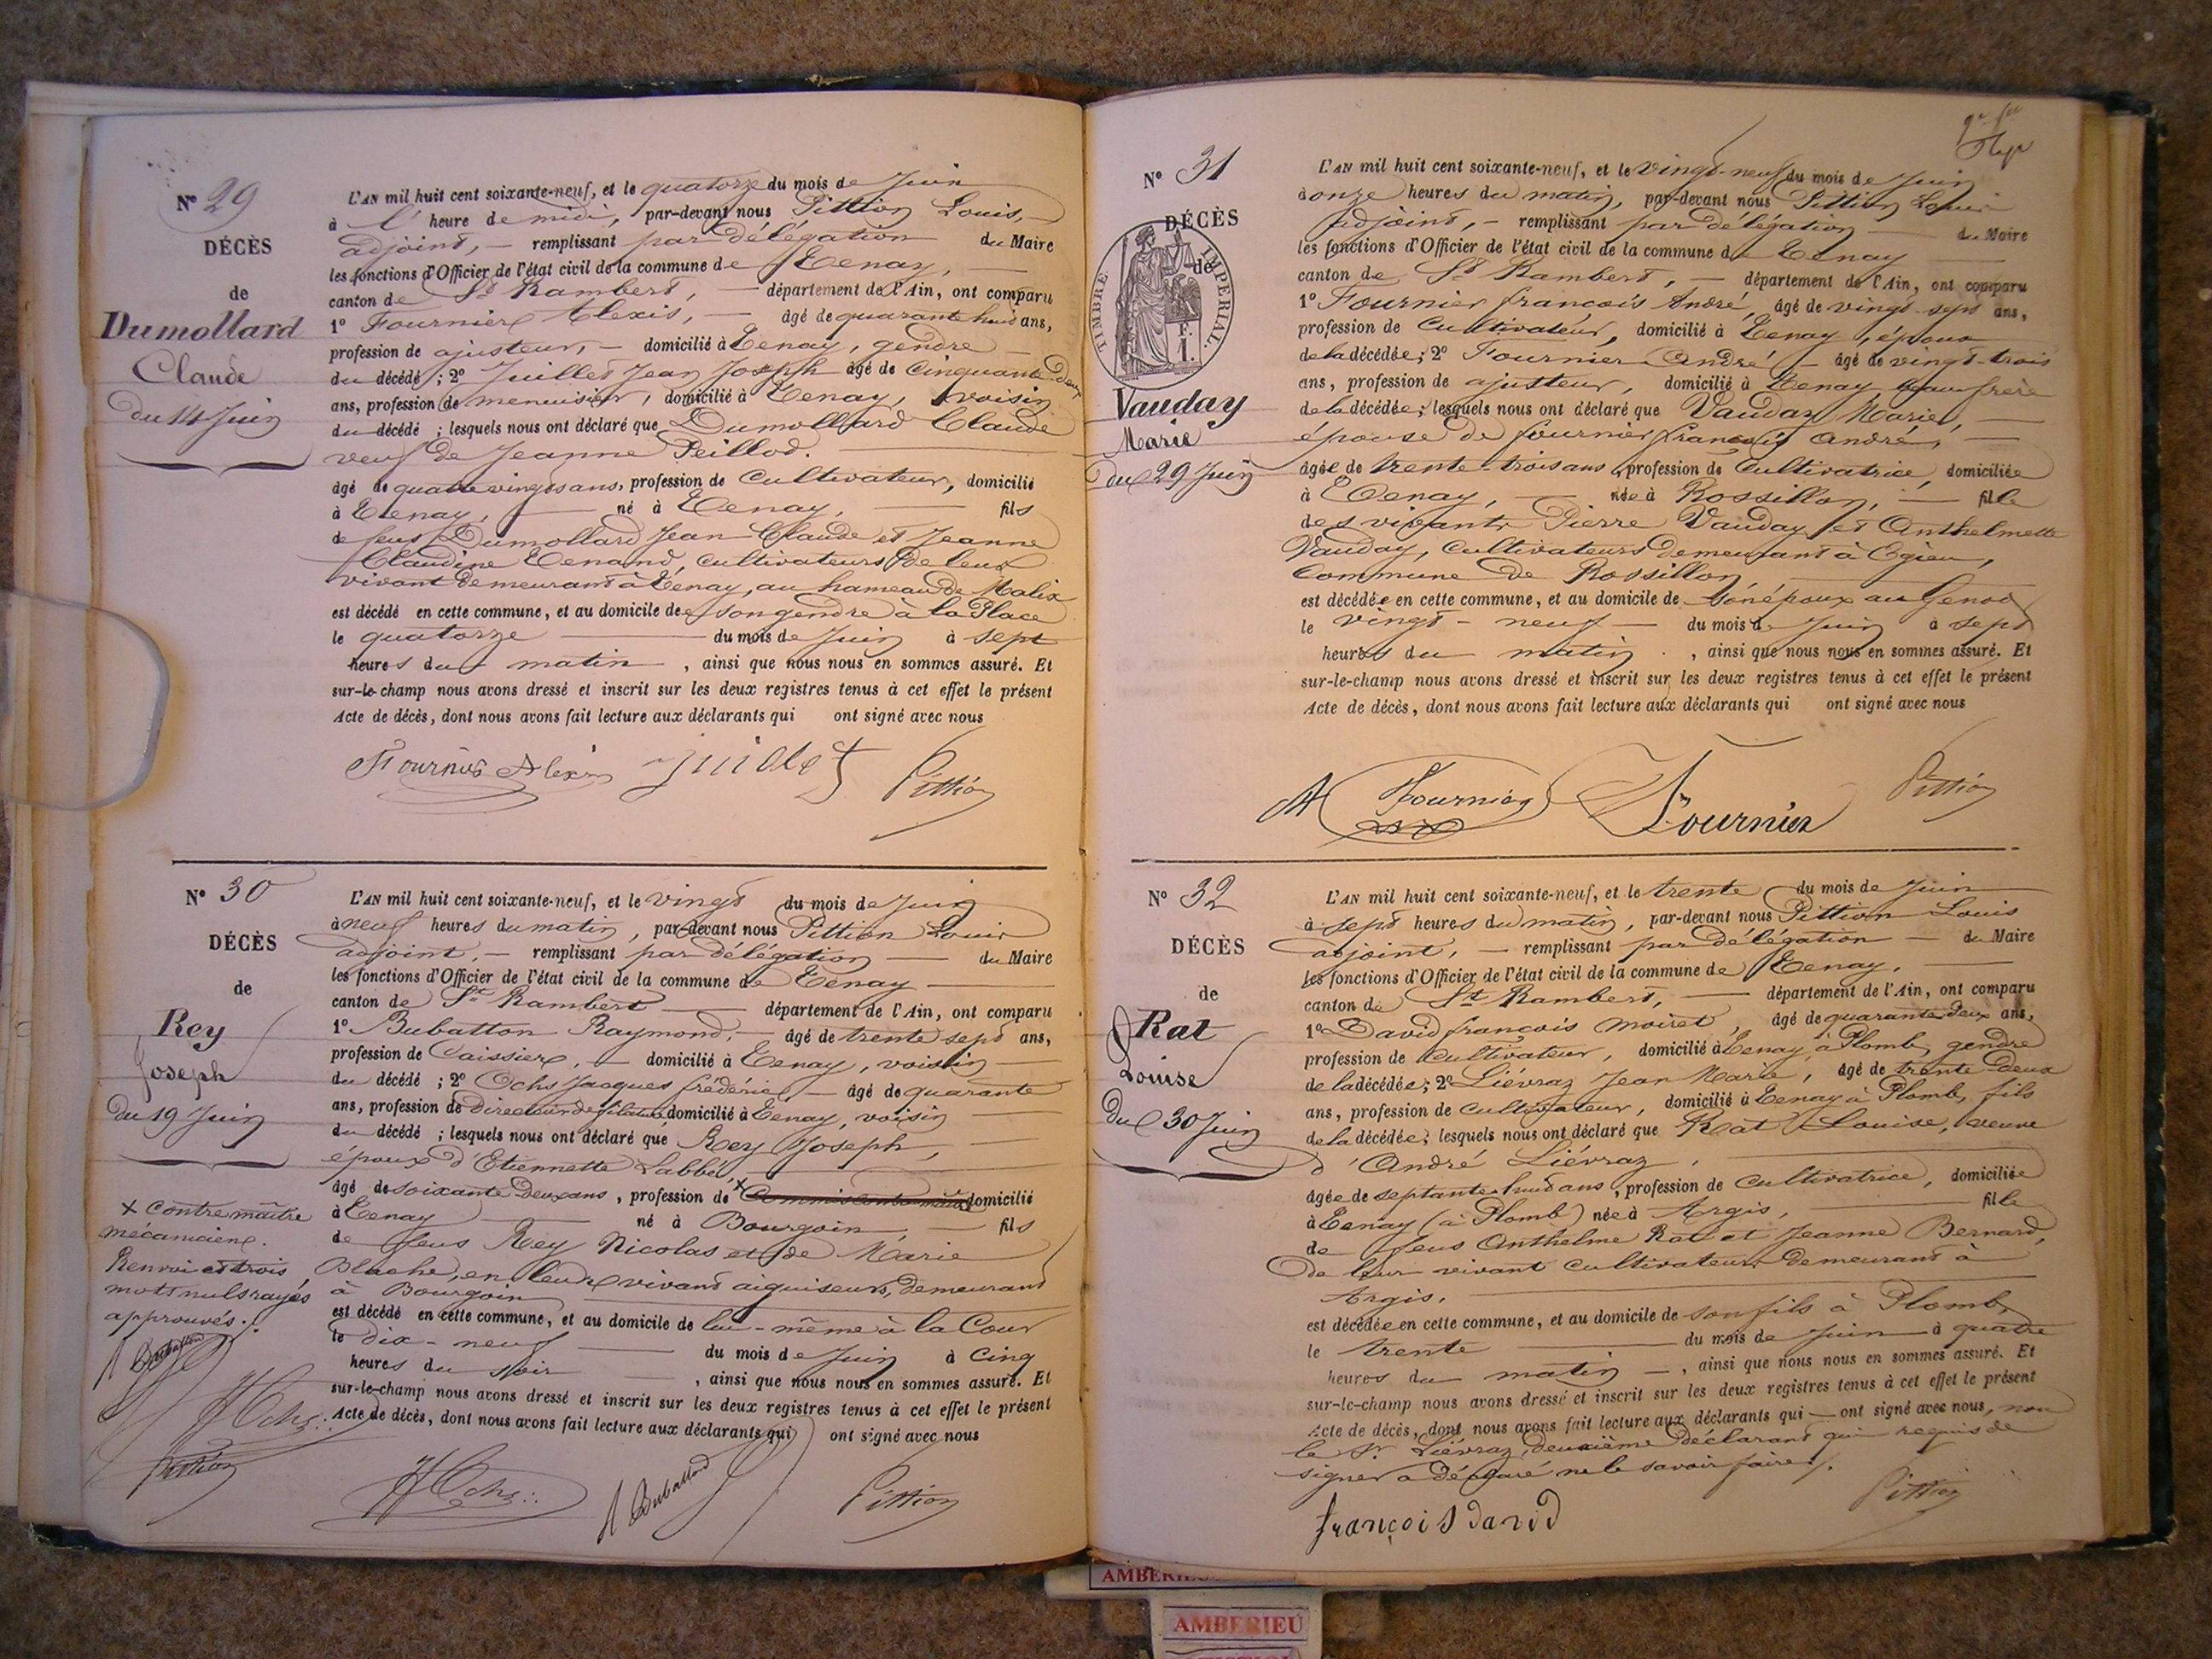 N° 29
DÉCÈS
de
Dumollard
Claude
du 14 Juin
L'AN mil huit cent soixante-neuf, et le quatorze du mois de Juin
à l' heure de midi, par-devant nous Pittion Louis,
adjoint, remplissant par délégation du Maire
les fonctions d'Officier de l'état civil de la commune de Tenay,
canton de St Rambert, département de l'Ain, ont comparu
1° Fournier Alexis, âgé de quarante huit ans,
profession de ajusteur, domicilié à Tenay, gendre
du décédé ; 2° Juillet Jean Joseph âgé de Cinquante deux
ans, profession de menuisier, domicilié à Tenay, voisin
du décédé ; lesquels nous ont déclaré que Dumollard Claude
veuf de Jeanne Peillod.
âgé de quatre vingts ans, profession de Cultivateur, domicilié
à Tenay, né à Tenay, fils
de feus Dumollard Jean Claude et Jeanne
Claudine Tenand, cultivateurs de leur
vivant demeurant à Tenay, au hameau de Malix
est décédé en cette commune, et au domicile de son gendre à la Place
le quatorze du mois de Juin à sept
heures du matin, ainsi que nous nous en sommes assuré. Et
sur-le-champ nous avons dressé et inscrit sur les deux registres tenus à cet effet le présent
Acte de décès, dont nous avons fait lecture aux déclarants qui ont signé avec nous
Fournier Alexis Juillet Pittion
N° 30
DÉCÈS
de
Rey
Joseph
du 19 Juin
x Contre maître
mécanicien.
Renvoi et trois
mots nuls rayés
approuvés.
A Bubatton
H Ochs
Pittion
L'AN mil huit cent soixante-neuf, et le vingt du mois de Juin
à neuf heures du matin, par-devant nous Pittion Louis
adjoint, remplissant par délégation du Maire
les fonctions d'Officier de l'état civil de la commune de Tenay
canton de St Rambert département de l'Ain, ont comparu
1° Bubatton Raymond, âgé de trente sept ans,
profession de Caissier, domicilié à Tenay, voisin
du décédé ; 2° Ochs Jacques frédéric, âgé de quarante
ans, profession de Directeur de filature domicilié à Tenay, voisin
du décédé ; lesquels nous ont déclaré que Rey Joseph,
époux d'Etiennette Labbé,
âgé de soixante deux ans, profession de x domicilié
à Tenay né à Bourgoin, fils
de feus Rey Nicolas et de Marie
Blache, en leur vivant aiguiseurs, demeurant
à Bourgoin
est décédé en cette commune, et au domicile de lui-même à la Cour
le dix-neuf du mois de Juin à Cinq
heures du soir, ainsi que nous nous en sommes assuré. Et
sur-le-champ nous avons dressé et inscrit sur les deux registres tenus à cet effet le présent
Acte de décès, dont nous avons fait lecture aux déclarants qui ont signé avec nous
H Ochs A Bubatton Pittion
N° 31
DÉCÈS
de
TIMBRE IMPERIAL
F.
1.
Vauday
Marie
du 29 Juin
L'AN mil huit cent soixante-neuf, et le vingt-neuf du mois de Juin
à onze heures du matin, par-devant nous Pittion Louis
adjoint, remplissant par délégation du Maire
les fonctions d'Officier de l'état civil de la commune de Tenay
canton de St Rambert, département de l'Ain, ont comparu
1° Fournier françois André, âgé de vingt-sept ans,
profession de Cultivateur, domicilié à Tenay, époux
de la décédée; 2° Fournier André âgé de vingt-trois
ans, profession de ajusteur, domicilié à Tenay, beau frère
de la décédée; lesquels nous ont déclaré que Vauday Marie,
épouse de fournier françois André,
âgée de trente-trois ans, profession de Cultivatrice, domiciliée
à Tenay, née à Rossillon, fille
des vivants Pierre Vauday et Anthelmette
Vauday, Cultivateurs demeurant à Egieu,
Commune de Rossillon,
est décédée en cette commune, et au domicile de son époux au Genod
le vingt-neuf du mois de Juin à sept
heures du matin, ainsi que nous nous en sommes assuré. Et
sur-le-champ nous avons dressé et inscrit sur les deux registres tenus à cet effet le présent
Acte de décès, dont nous avons fait lecture aux déclarants qui ont signé avec nous
A Fournier Fournier Pittion
N° 32
DÉCÈS
de
Rat
Louise
du 30 Juin
L'AN mil huit cent soixante-neuf, et le trente du mois de Juin
à sept heures du matin, par-devant nous Pittion Louis
adjoint, remplissant par délégation du Maire
les fonctions d'Officier de l'état civil de la commune de Tenay.
canton de St Rambert, département de l'Ain, ont comparu
1° David françois moiret, âgé de quarante deux ans,
profession de Cultivateur, domicilié à Tenay à Plomb, gendre
de la décédée; 2° Liévraz Jean Marie, âgé de trente deux
ans, profession de Cultivateur, domicilié à Tenay à Plomb, fils
de la décédée; lesquels nous ont déclaré que Rat Louise, veuve
d'André Liévraz,
âgée de septante-huit ans, profession de Cultivatrice, domiciliée
à Tenay (à Plomb) née à Argis, fille
de feus Anthelme Rat et Jeanne Bernard,
de leur vivant cultivateurs demeurant à
Argis.
est décédée en cette commune, et au domicile de son fils à Plomb,
le trente du mois de Juin à quatre
heures du matin, ainsi que nous nous en sommes assuré. Et
sur-le-champ nous avons dressé et inscrit sur les deux registres tenus à cet effet le présent
Acte de décès, dont nous avons fait lecture aux déclarants qui ont signé avec nous, non
le Sr Liévraz, deuxième déclarant qui requis de
signer a déclaré ne le savoir faire.
françois david Pittion
AMBERIEU
AMBERIEU